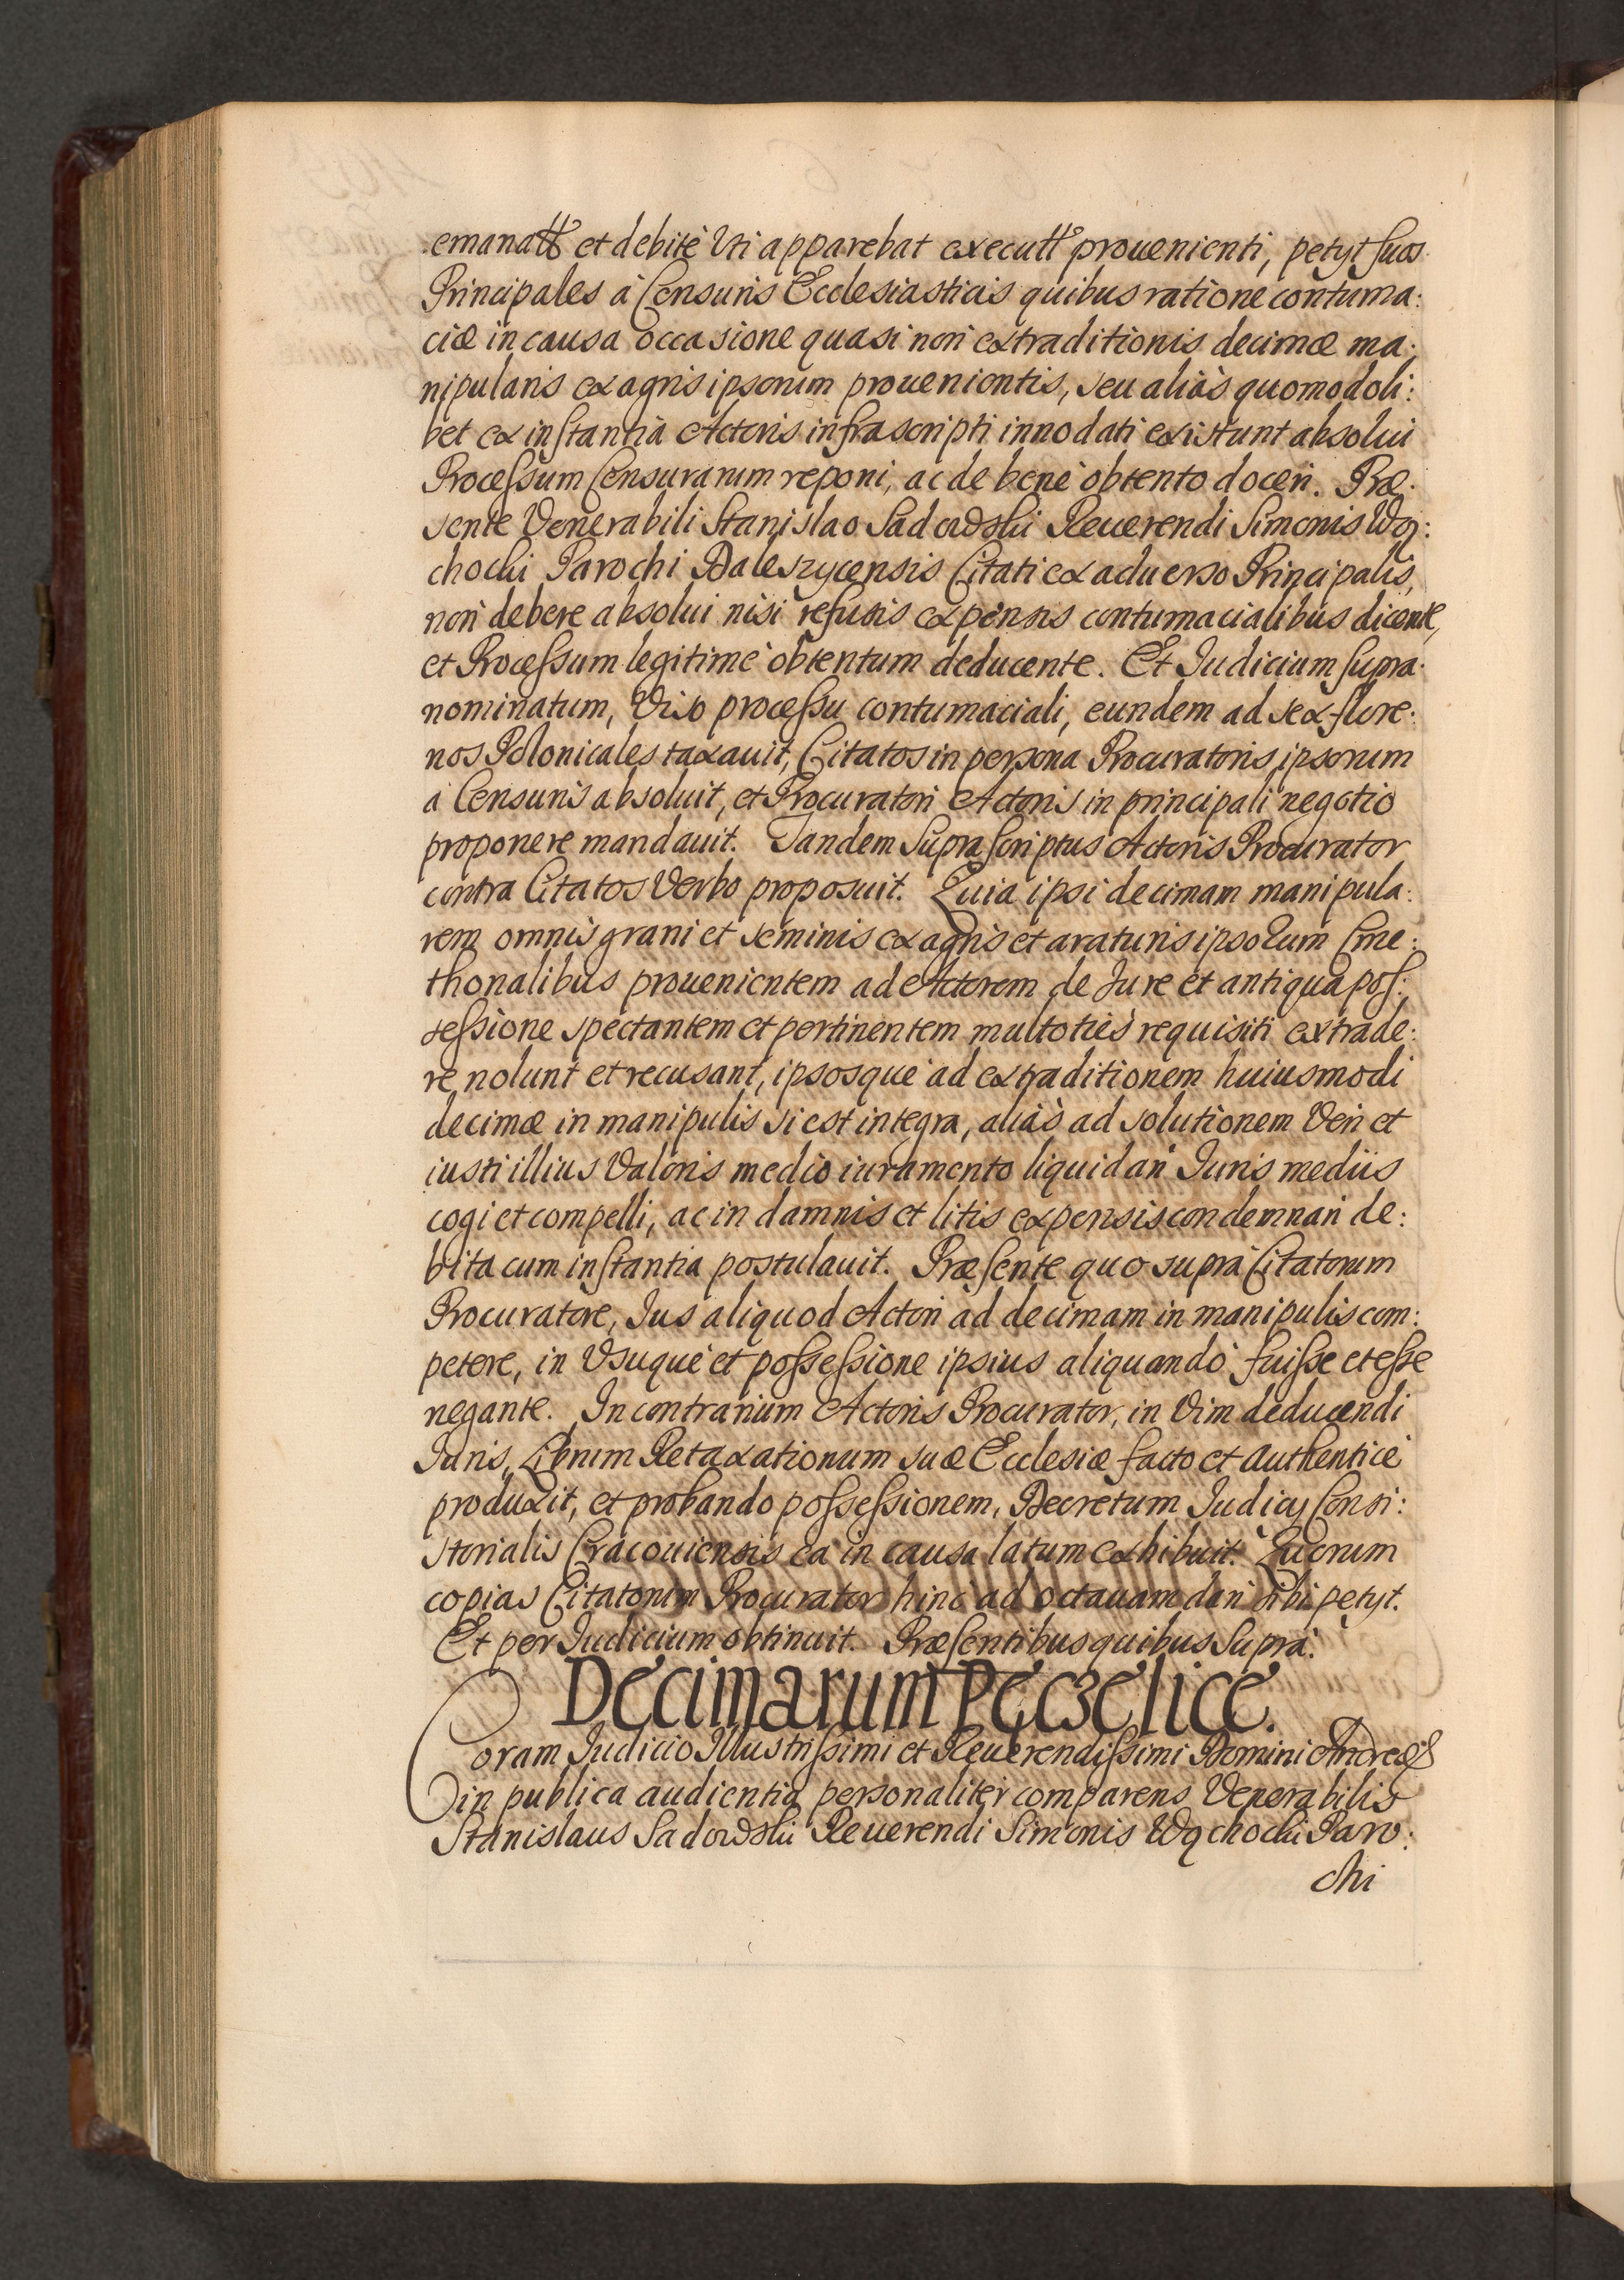 emanatt et debitè Vti apparebat executt prouenienti, petyt suos
Principales à Censuris Ecclesiasticis quibus ratione contuma:
ciæ in causa occasione quasi non extraditionis decimæ ma:
nipularis ex agris ipsorum prouenientis, seu aliàs quomodoli:
bet ex instantià Actoris infrascripti innodati existunt absolui
Processum Censurarum reponi, ac de benè obtento doceri. Præ:
sente Venerabili Stanislao Sadowski Reuerendi Simonis Wą:
chocki Parochi Daleszycensis Citati ex aduerso Principalis,
non debere absolui nisi refusis expensis contumacialibus dicente,
et Processum legitimè obtentum deducente. Et Iudicium supra:
nominatum, Viso processu contumaciali, eundem ad sex flore:
nos Polonicales taxauit, Citatos in persona Procuratoris ipsorum
à Censuris absoluit, et Procuratori Actoris in principali negotio
proponere mandauit. Tandem Suprascriptus Actoris Procurator
contra Citatos Verbo proposuit. Quia ipsi decimam manipula:
rem omnis grani et seminis ex agris et araturis ipsorum Cme:
thonalibus prouenientem ad Actorem de Iure et antiqua pos:
sessione spectantem et pertinentem multoties requisiti extrade:
re nolunt et recusant, ipsosque ad extraditionem huiusmodi
decimæ in manipulis si est integra, aliàs ad solutionem Veri et
iusti illius Valoris medio iuramento liquidari Iuris mediis
cogi et compelli, ac in damnis et litis expensis condemnari de:
bita cum instantia postulauit. Præsente quo suprà Citatorum
Procuratore, Ius aliquod Actori ad decimam in manipulis com:
petere, in Vsuque et possessione ipsius aliquandò fuisse et esse
negante. In contrarium Actoris Procurator, in Vim deducendi
Iuris, Librum Retaxationum suæ Ecclesiæ facto et authenticè
produxit, et probando possessionem, Decretum Iudicij Consi:
storialis Cracouiensis ea in causa latum exhibuit. Quorum
copias Citatorum Procurator hinc ad octauam dari sibi petyt.
Et per Iudicium obtinuit. Præsentibus quibus Suprà.
Decimarum Pęczelice.
Coram Iudicio Illustrissimi et Reuerendissimi Domini Andreæ
in publica audientia personaliter comparens Venerabilis
Stanislaus Sadowski Reuerendi Simonis Wąchocki Paro:
chi